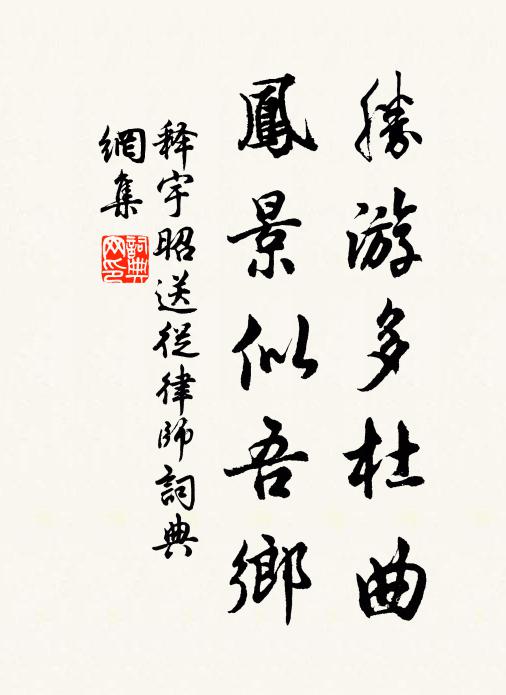 勝游多杜曲
鳳景似吾鄉
释宇昭送從律師詞典
網集
詞典
网印